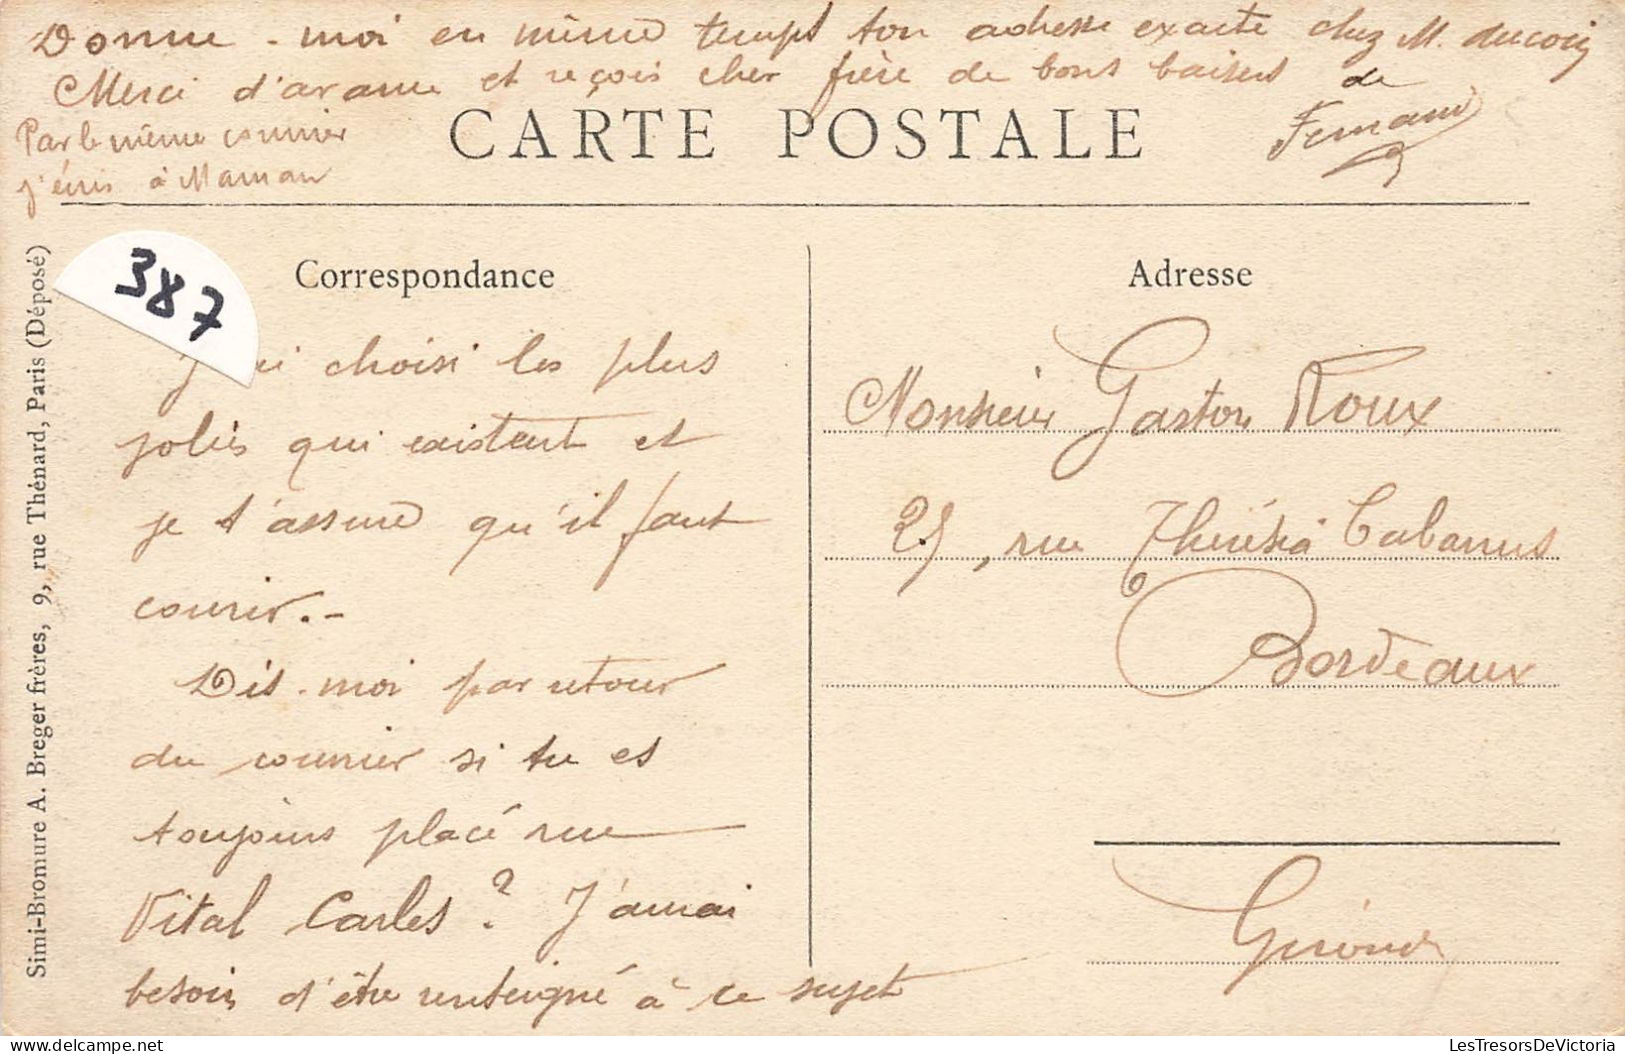 Donne-moi en même temps ton adresse exacte chez M.
Merci d'avance et reçois cher frère de bons baisers de
Fernand
Par le même courrier
j'écris à Maman
CARTE POSTALE
387
Correspondance
J'ai choisi les plus
jolies qui existent et
je t'assure qu'il faut
courir.-
Dis-moi par retour
du courrier si tu es
toujours placé rue
Vital Carles? J'aurai
besoin d'être renseigné à ce sujet
Adresse
Monsieur Gaston Roux
25, rue Thérésia Cabarrus
Bordeaux
Gironde
Simi-Bromure A. Breger frères, 9, rue Thénard, Paris (Déposé)
LesTresorsDeVictoria
delcampe.net